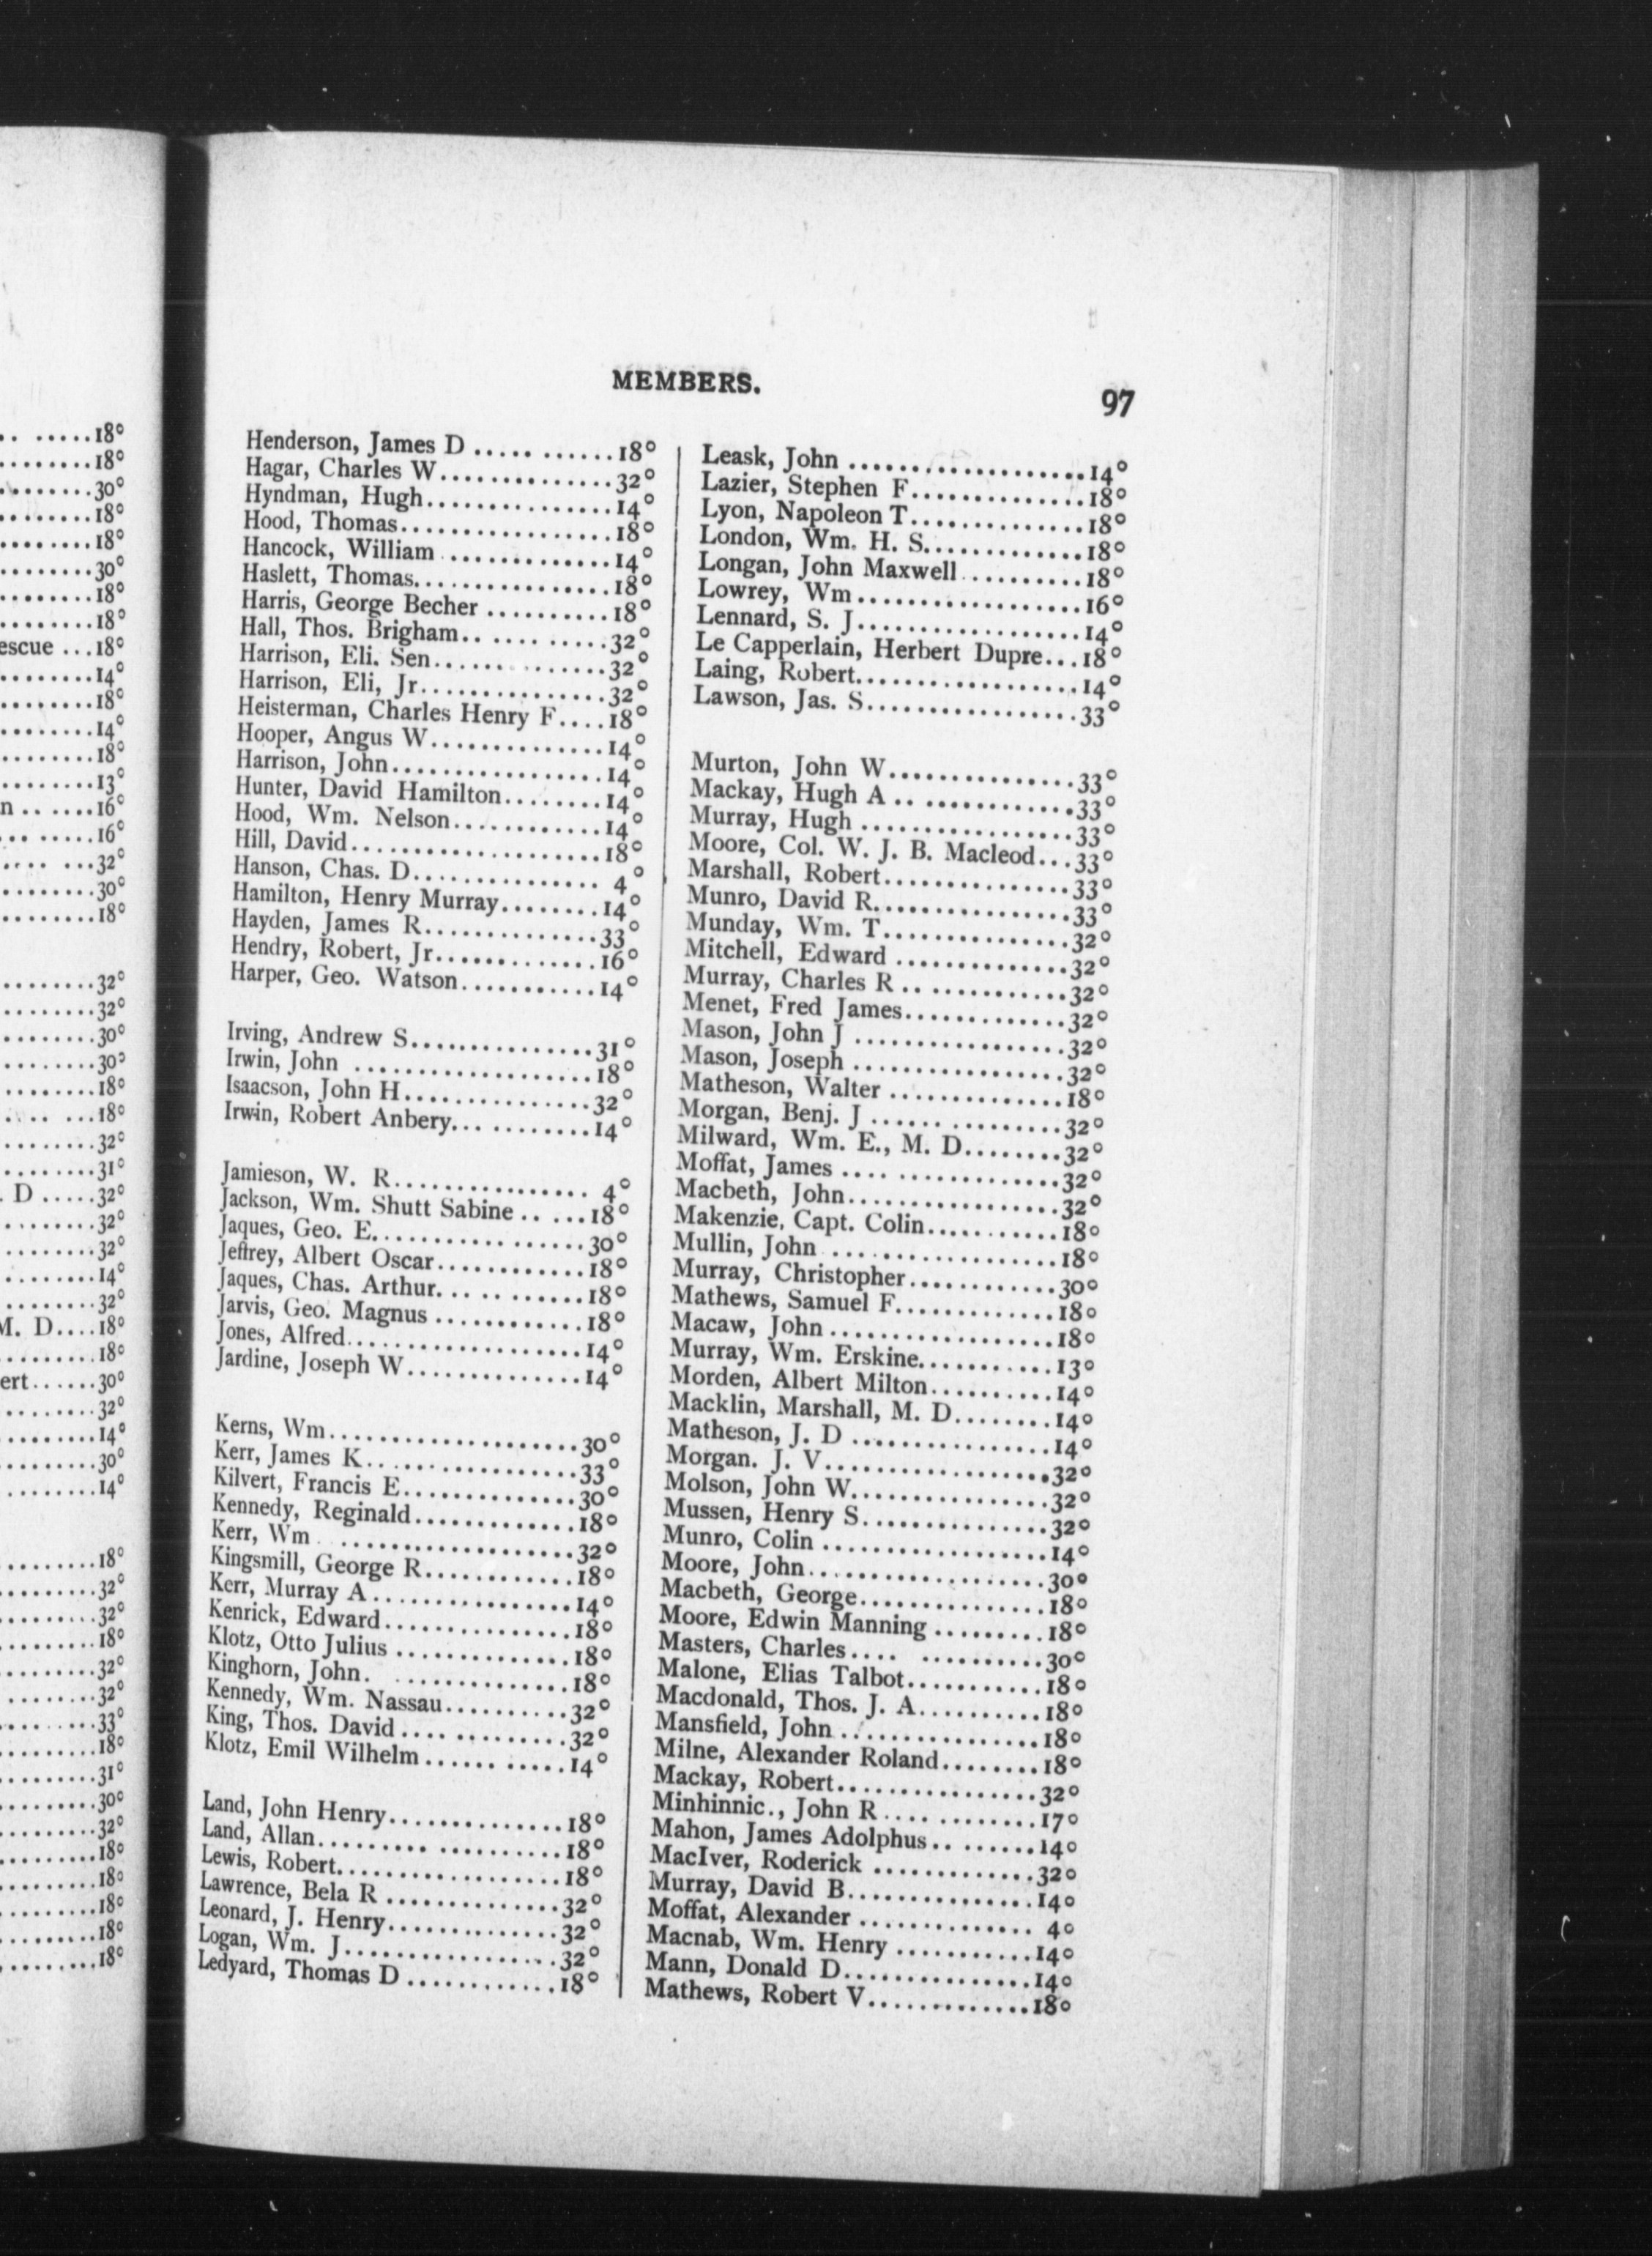 18°
18°
30°
18°
18°
30°
18°
18°
escue ...18°
14°
18°
14°
18°
13°
n ......16°
16°
32°
30°
18°
32°
32°
30°
30°
18°
18°
32°
31°
. D .....32°
32°
32°
14°
32°
M. D....18°
18°
ert......30°
32°
14°
30°
14°
18°
32°
32°
18°
32°
32°
33°
18°
31°
30°
32°
18°
18°
18°
18°
18°
MEMBERS.
97
Henderson, James D ...........18°
Hagar, Charles W..............32°
Hyndman, Hugh...............14°
Hood, Thomas.................18°
Hancock, William ..............14°
Haslett, Thomas................18°
Harris, George Becher ..........18°
Hall, Thos. Brigham............32°
Harrison, Eli. Sen..............32°
Harrison, Eli, Jr...............32°
Heisterman, Charles Henry F....18°
Hooper, Angus W..............14°
Harrison, John.................14°
Hunter, David Hamilton........14°
Hood, Wm. Nelson............14°
Hill, David.....................18°
Hanson, Chas. D............... 4°
Hamilton, Henry Murray........14°
Hayden, James R..............33°
Hendry, Robert, Jr.............16°
Harper, Geo. Watson...........14°
Irving, Andrew S...............31°
Irwin, John ....................18°
Isaacson, John H...............32°
Irwin, Robert Anbery...........14°
Jamieson, W. R................ 4°
Jackson, Wm. Shutt Sabine .....18°
Jaques, Geo. E.................30°
Jeffrey, Albert Oscar............18°
Jaques, Chas. Arthur............18°
Jarvis, Geo. Magnus ............18°
Jones, Alfred...................14°
Jardine, Joseph W..............14°
Kerns, Wm....................30°
Kerr, James K.................33°
Kilvert, Francis E..............30°
Kennedy, Reginald.............18°
Kerr, Wm ...................32°
Kingsmill, George R............18°
Kerr, Murray A................14°
Kenrick, Edward...............18°
Klotz, Otto Julius ..............18°
Kinghorn, John. ..............18°
Kennedy, Wm. Nassau..........32°
King, Thos. David .............32°
Klotz, Emil Wilhelm ...........14°
Land, John Henry..............18°
Land, Allan....................18°
Lewis, Robert..................18°
Lawrence, Bela R ..............32°
Leonard, J. Henry..............32°
Logan, Wm. J.................32°
Ledyard, Thomas D ............18°
Leask, John ...................14°
Lazier, Stephen F..............18°
Lyon, Napoleon T..............18°
London, Wm. H. S.............18°
Longan, John Maxwell..........18°
Lowrey, Wm..................16°
Lennard, S. J..................14°
Le Capperlain, Herbert Dupre...18°
Laing, Robert..................14°
Lawson, Jas. S.................33°
Murton, John W...............33°
Mackay, Hugh A ..............33°
Murray, Hugh .................33°
Moore, Col. W. J. B. Macleod...33°
Marshall, Robert...............33°
Munro, David R................33°
Munday, Wm. T...............32°
Mitchell, Edward ..............32°
Murray, Charles R .............32°
Menet, Fred James.............32°
Mason, John J .................32°
Mason, Joseph .................32°
Matheson, Walter ..............18°
Morgan, Benj. J ...............32°
Milward, Wm. E., M. D........32°
Moffat, James .................32°
Macbeth, John.................32°
Makenzie, Capt. Colin...........18°
Mullin, John ..................18°
Murray, Christopher............30°
Mathews, Samuel F.............18°
Macaw, John ..................18°
Murray, Wm. Erskine...........13°
Morden, Albert Milton..........14°
Macklin, Marshall, M. D........14°
Matheson, J. D ................14°
Morgan. J. V..................32°
Molson, John W................32°
Mussen, Henry S...............32°
Munro, Colin ..................14°
Moore, John...................30°
Macbeth, George...............18°
Moore, Edwin Manning .........18°
Masters, Charles.... ..........30°
Malone, Elias Talbot...........18°
Macdonald, Thos. J. A..........18°
Mansfield, John ................18°
Milne, Alexander Roland........18°
Mackay, Robert................32°
Minhinnic., John R ............17°
Mahon, James Adolphus.........14°
MacIver, Roderick .............32°
Murray, David B...............14°
Moffat, Alexander .............. 4°
Macnab, Wm. Henry ...........14°
Mann, Donald D...............14°
Mathews, Robert V.............18°